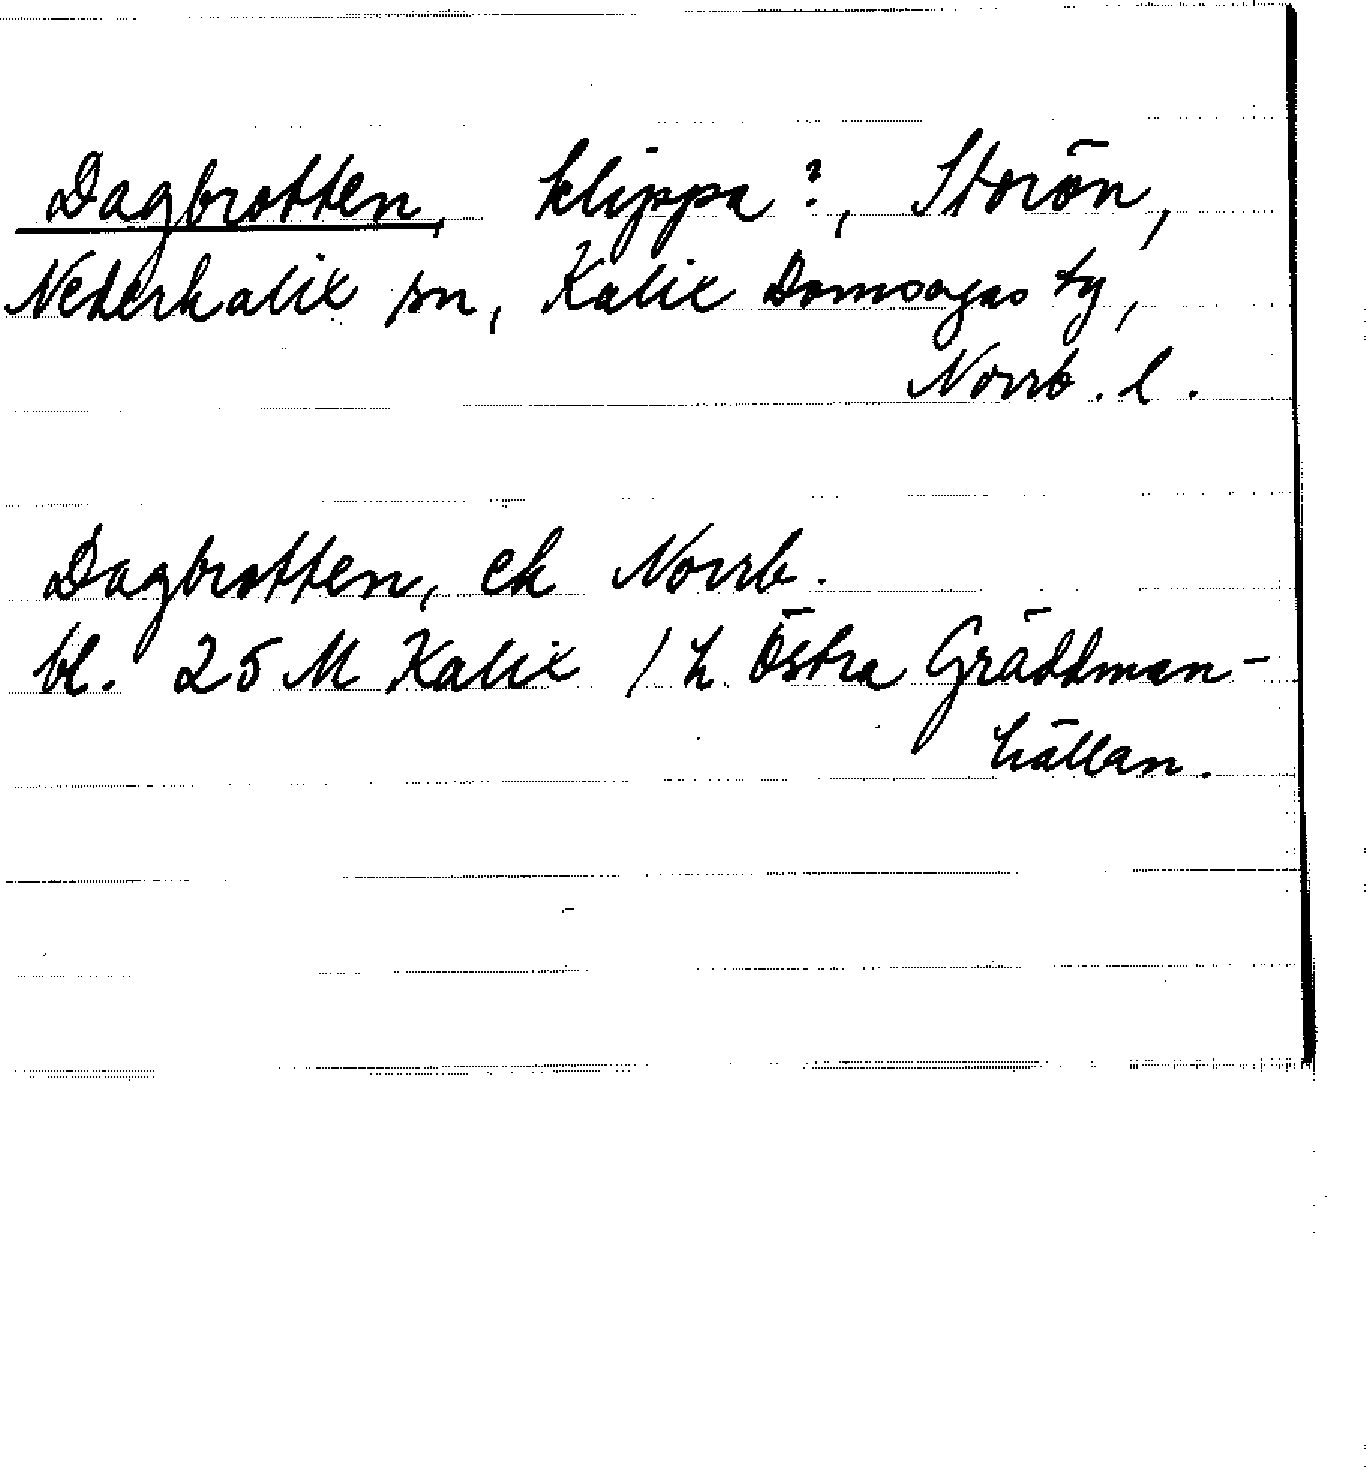 Dagbrotten, klippa?, Storön,
Nederkalix sn, Kalix Domsagas tg,
Norrb. l.
Dagbrotten, ek Norrb.
bl. 25 M Kalix / h Östra Gräddman-
hällan.